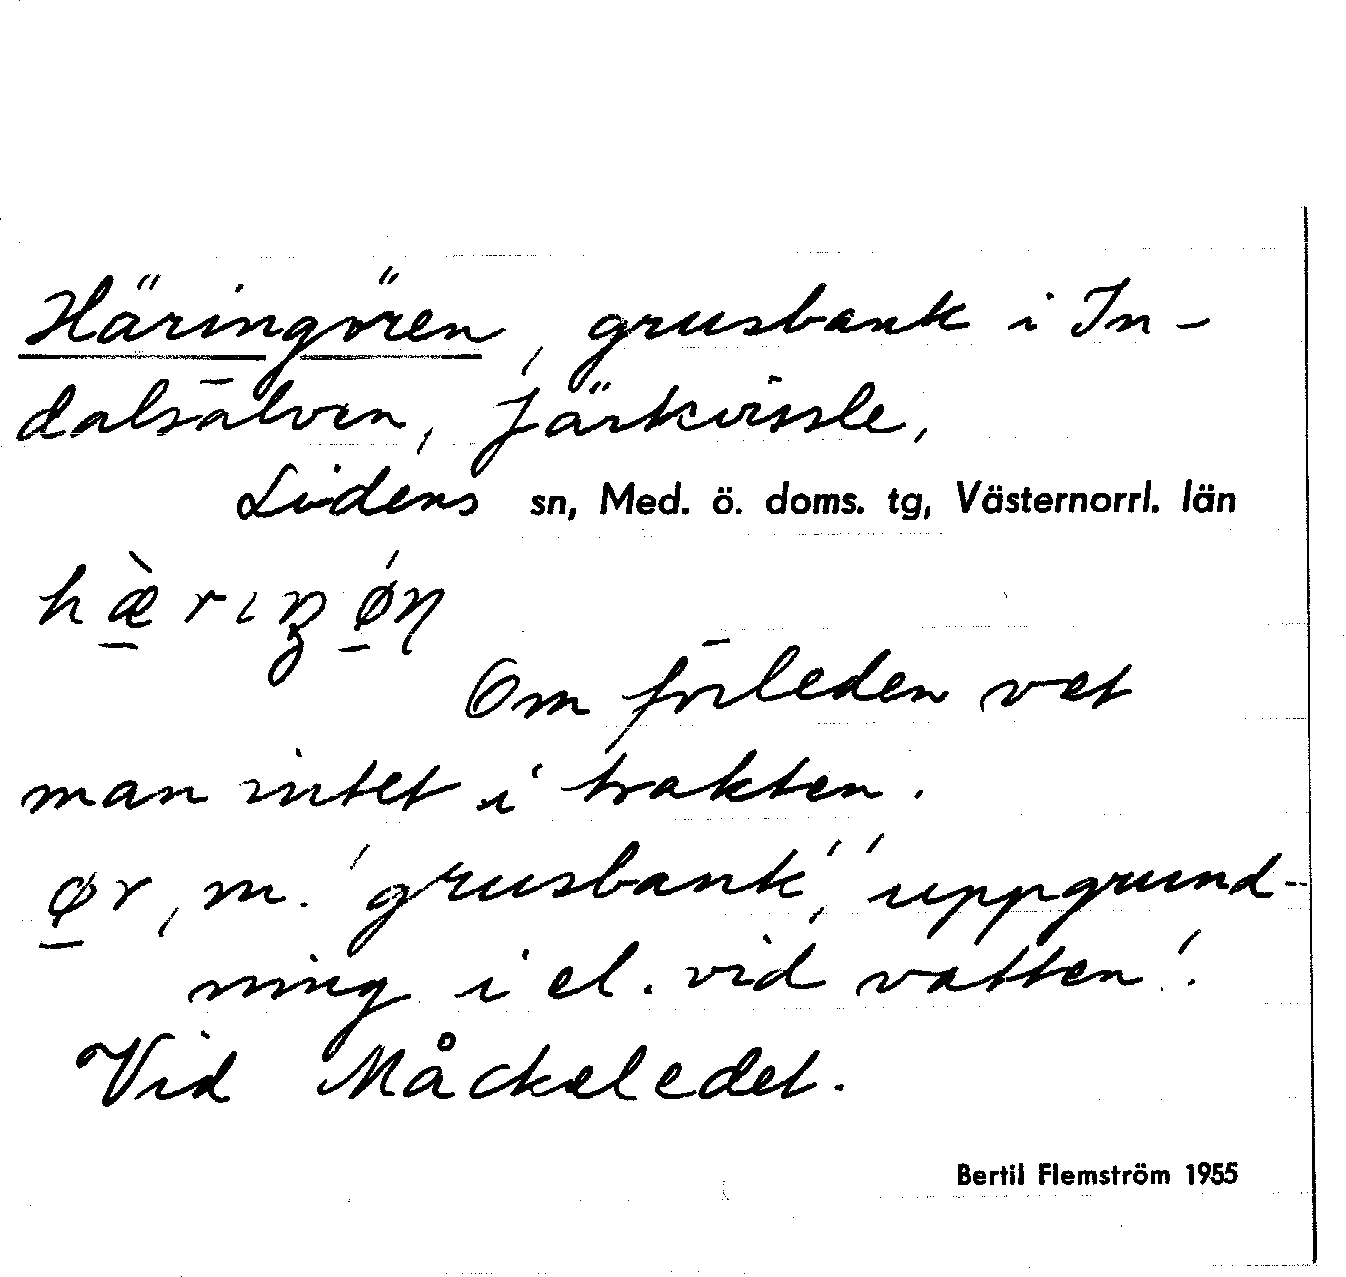 Häringören, grusbank i In-
dalsälven, Järkvissle,
Lidens sn, Med. ö. doms. tg, Västernorrl. län
Om förleden vet
man intet i trakten.
ør, m. 'grusbank', 'uppgrund-
ning i el. vid vatten'.
Vid Måckeledet.
Bertil Flemström 1955